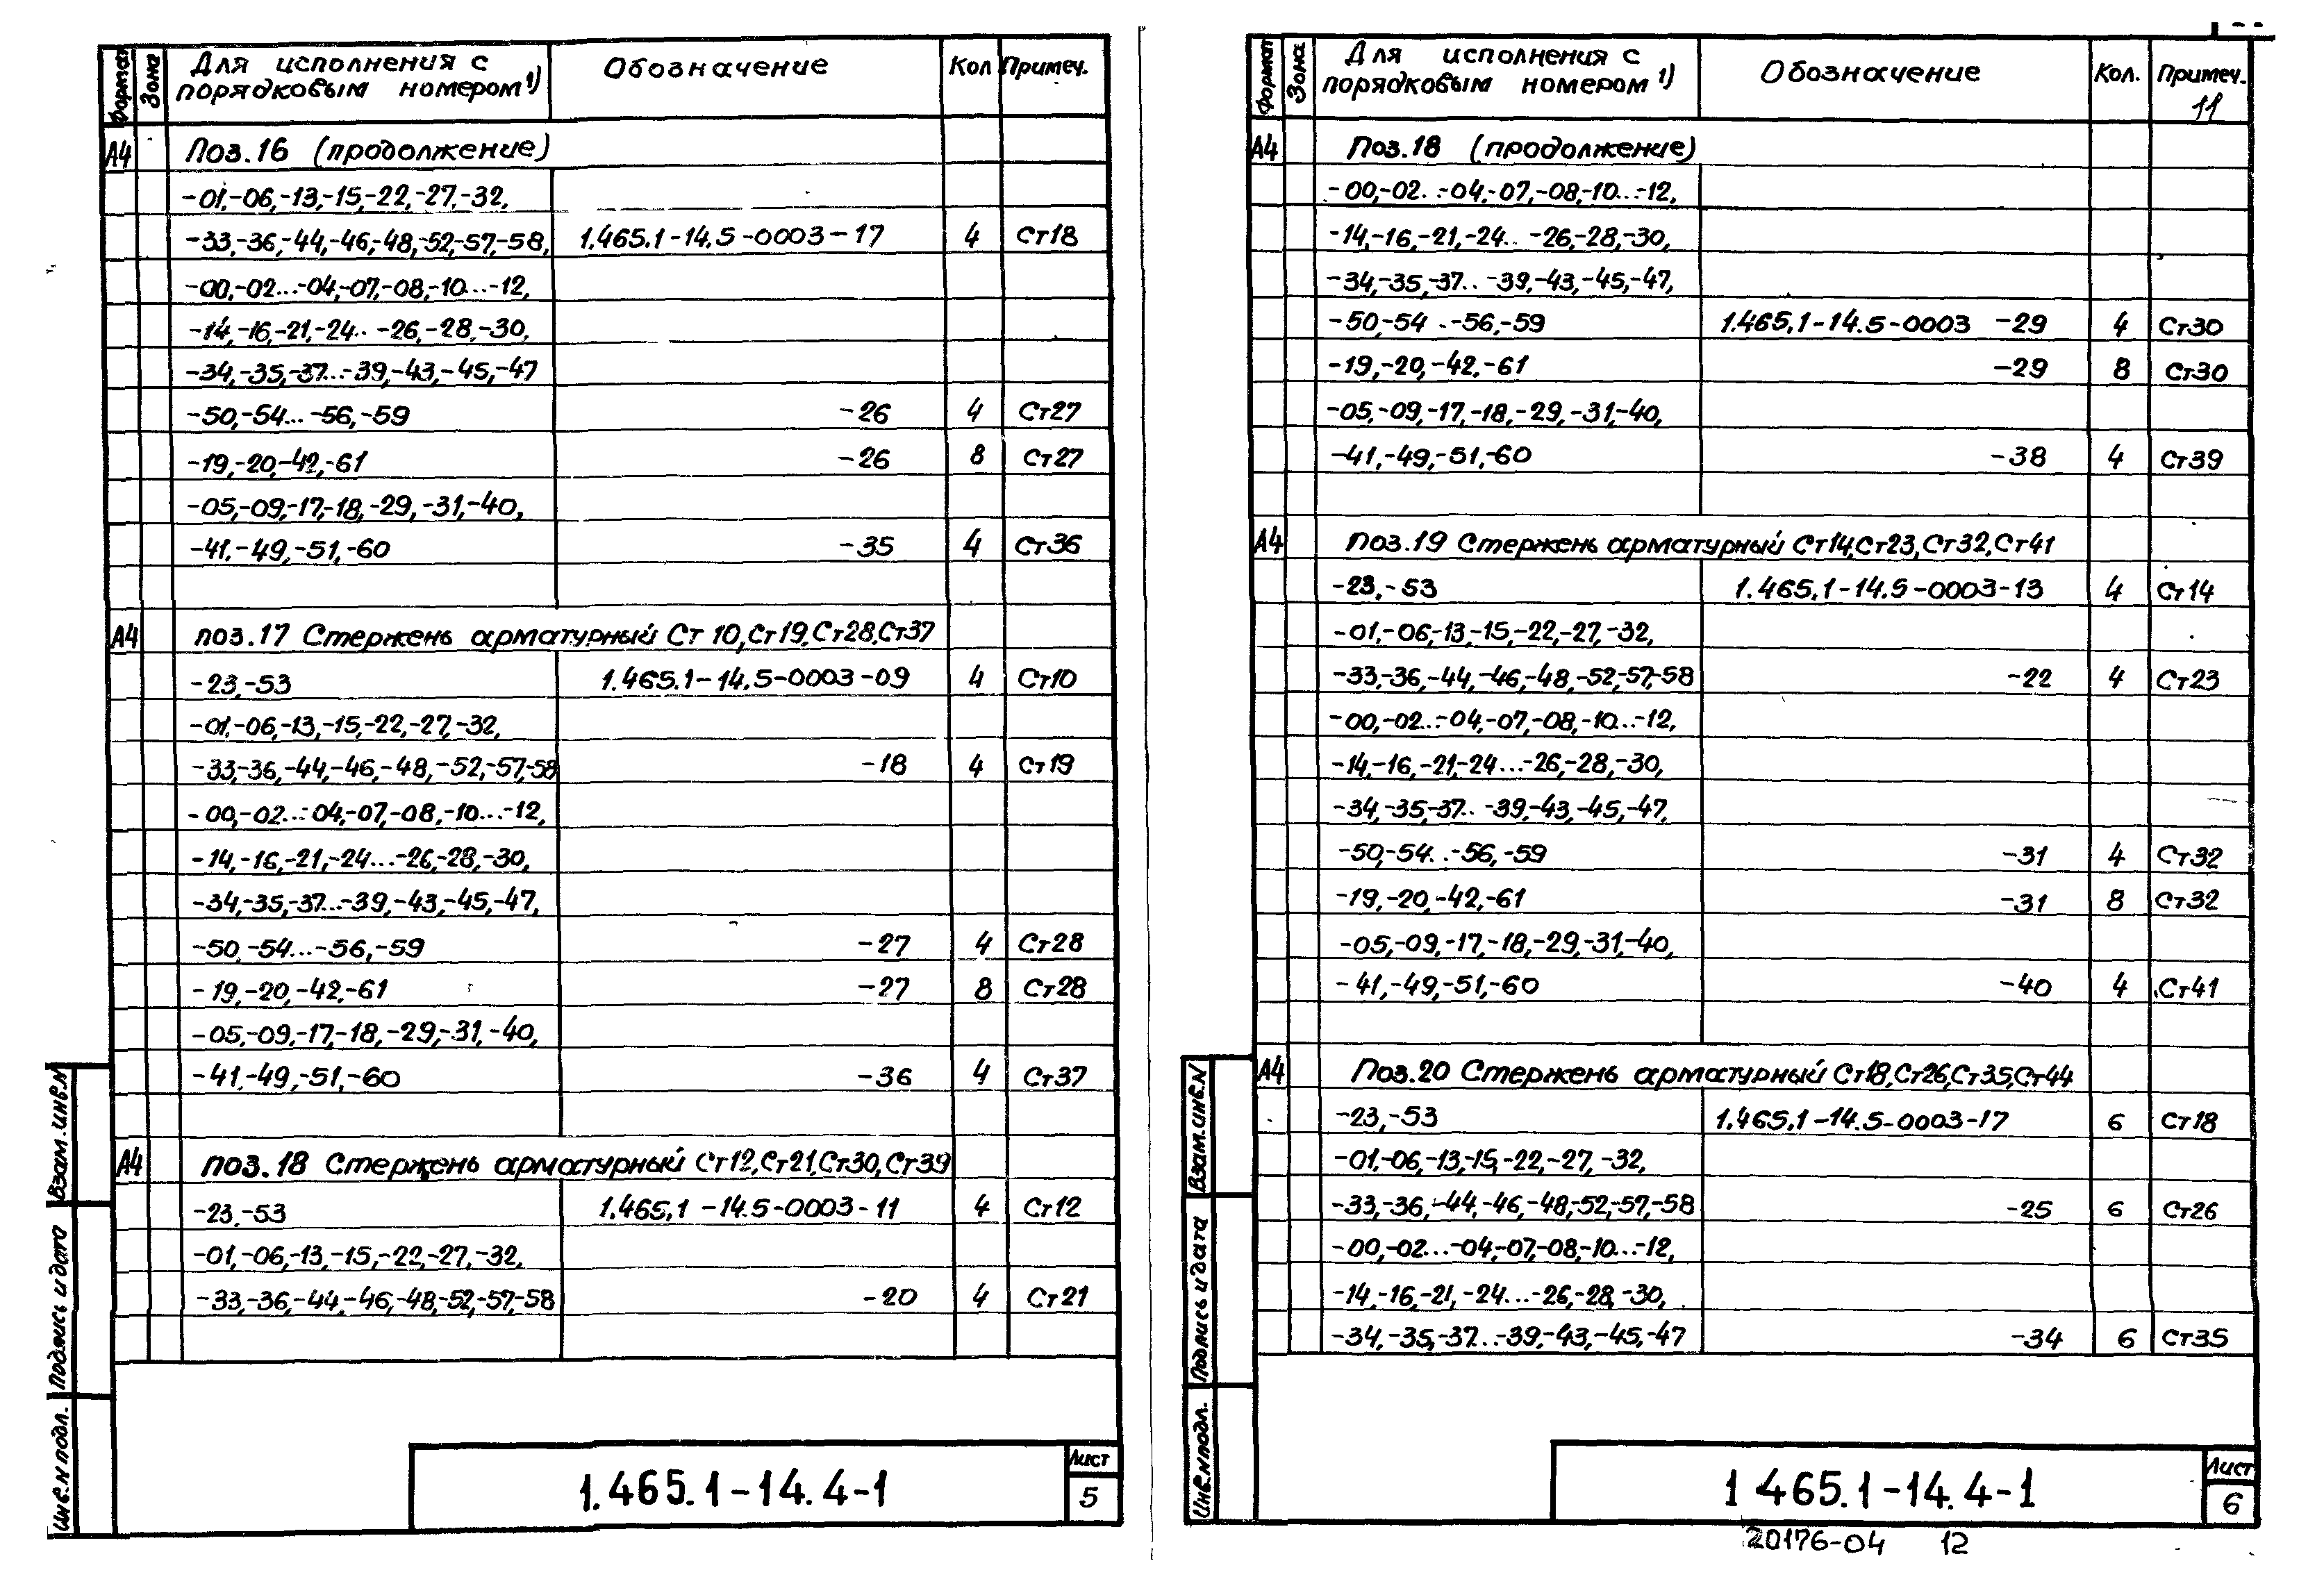 Формат Зона Для исполнения с порядковым номером 1) Обозначение Кол Примеч.
А4 Поз.16 (продолжение)
-01,-06,-13,-15,-22,-27,-32,
-33,-36,-44,-46,-48,-52,-57,-58, 1.465.1-14.5-0003-17 4 Ст18
-00,-02...-04,-07,-08,-10...-12,
-14,-16,-21,-24..-26,-28,-30,
-34,-35,-37...-39,-43,-45,-47
-50,-54...-56,-59 -26 4 Ст27
-19,-20,-42,-61 -26 8 Ст27
-05,-09,-17,-18,-29,-31,-40,
-41,-49,-51,-60 -35 4 Ст36
А4 поз.17 Стержень арматурный Ст 10,Ст19,Ст28,Ст37
-23,-53 1.465.1-14.5-0003-09 4 Ст10
-01,-06,-13,-15,-22,-27,-32,
-33,-36,-44,-46,-48,-52,-57,-58 -18 4 Ст19
-00,-02...-04,-07,-08,-10...-12,
-14,-16,-21,-24...-26,-28,-30,
-34,-35,-37...-39,-43,-45,-47,
-50,-54...-56,-59 -27 4 Ст28
-19,-20,-42,-61 -27 8 Ст28
-05,-09,-17,-18,-29,-31,-40,
-41,-49,-51,-60 -36 4 Ст37
А4 поз.18 Стержень арматурный Ст12,Ст21,Ст30,Ст39
-23,-53 1.465.1-14.5-0003-11 4 Ст12
-01,-06,-13,-15,-22,-27,-32,
-33,-36,-44,-46,-48,-52,-57,-58 -20 4 Ст21
Взам.инв.N
Подпись и дата
Инв.N подл.
1.465.1-14.4-1
Лист
5
Формат Зона Для исполнения с порядковым номером 1) Обозначение Кол. Примеч.
11
А4 Поз.18 (продолжение)
-00,-02..-04,-07,-08,-10...-12,
-14,-16,-21,-24..-26,-28,-30,
-34,-35,-37..-39,-43,-45,-47,
-50,-54..-56,-59 1.465.1-14.5-0003 -29 4 Ст30
-19,-20,-42,-61 -29 8 Ст30
-05,-09,-17,-18,-29,-31,-40,
-41,-49,-51,-60 -38 4 Ст39
А4 поз.19 Стержень арматурный Ст14,Ст23,Ст32,Ст41
-23,-53 1.465.1-14.5-0003-13 4 Ст14
-01,-06,-13,-15,-22,-27,-32,
-33,-36,-44,-46,-48,-52,-57,-58 -22 4 Ст23
-00,-02..-04,-07,-08,-10...-12,
-14,-16,-21,-24...-26,-28,-30,
-34,-35,-37..-39,-43,-45,-47,
-50,-54..-56,-59 -31 4 Ст32
-19,-20,-42,-61 -31 8 Ст32
-05,-09,-17,-18,-29,-31,-40,
-41,-49,-51,-60 -40 4 Ст41
А4 Поз.20 Стержень арматурный Ст18,Ст26,Ст35,Ст44
-23,-53 1.465.1-14.5-0003-17 6 Ст18
-01,-06,-13,-15,-22,-27,-32,
-33,-36,-44,-46,-48,-52,-57,-58 -25 6 Ст26
-00,-02...-04,-07,-08,-10...-12,
-14,-16,-21,-24...-26,-28,-30,
-34,-35,-37...-39,-43,-45,-47 -34 6 Ст35
Взам.инв.N
Подпись и дата
Инв.N подл.
1 465.1-14.4-1
Лист
6
20176-04 12